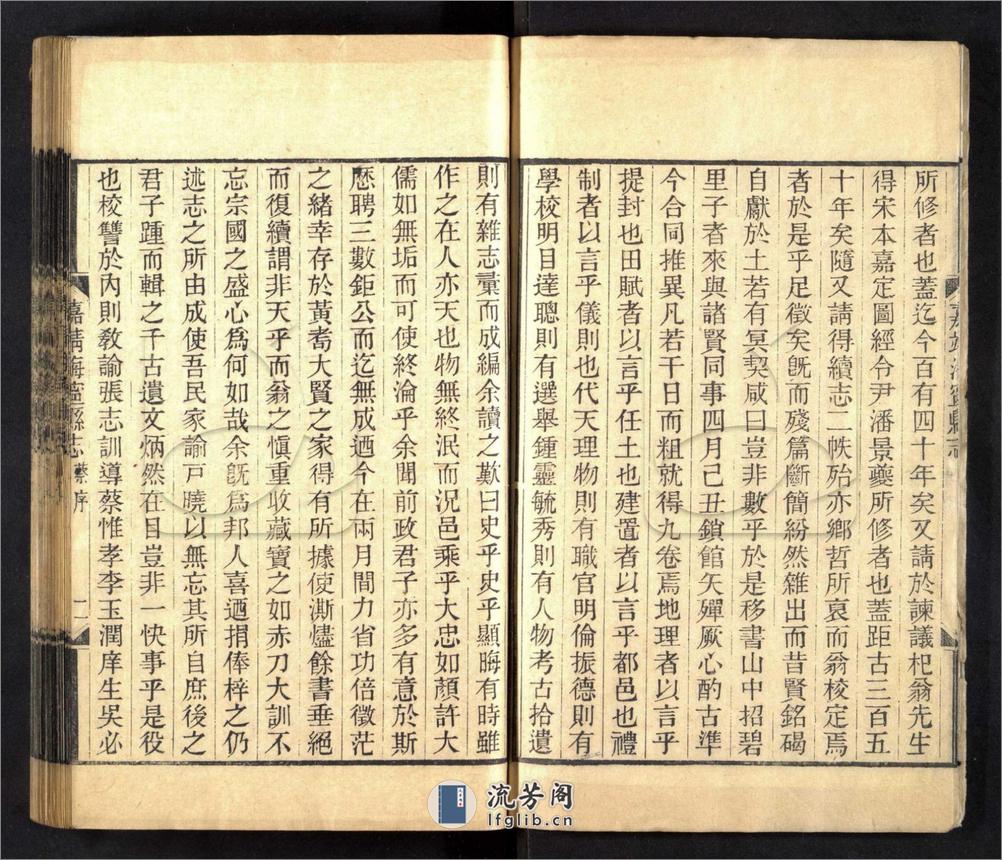 所修者也蓋迄今百有四十年矣又請於諫議杞翁先生
得宋本嘉定圖經令尹潘景夔所修者也蓋距古三百五
十年矣隨又請得續志二帙殆亦鄉哲所裒而翁校定焉
者於是乎足徵矣旣而殘篇斷簡紛然雜出而昔賢銘碣
自獻於土若有冥契咸曰豈非數乎於是移書山中招碧
里子者來與諸賢同事四月己丑鎖館矢殫厥心酌古準
今合同推異凡若干日而粗就得九卷焉地理者以言乎
提封也田賦者以言乎任土也建置者以言乎都邑也禮
制者以言乎儀則也代天理物則有職官明倫振德則有
學校明目達聰則有選舉鍾靈毓秀則有人物考古拾遺
嘉靖海寧縣志
則有雜志彚而成編余讀之歎曰史乎史乎顯晦有時雖
作之在人亦天也物無終泯而況邑乘乎大忠如顏許大
儒如無垢而可使終淪乎余聞前政君子亦多有意於斯
歷聘三數鉅公而迄無成迺今在兩月間力省功倍徵茫
之緒幸存於黃耇大賢之家得有所據使澌燼餘書垂絕
而復續謂非天乎而翁之愼重收藏寶之如赤刀大訓不
忘宗國之盛心爲何如哉余旣爲邦人喜迺捐俸梓之仍
述志之所由成使吾民家諭戸曉以無忘其所自庶後之
君子踵而輯之千古遺文炳然在目豈非一快事乎是役
也校讐於內則敎諭張志訓導蔡惟孝李玉潤庠生吳必
嘉靖海寧縣志 蔡序 二
流芳阁
lfglib.cn